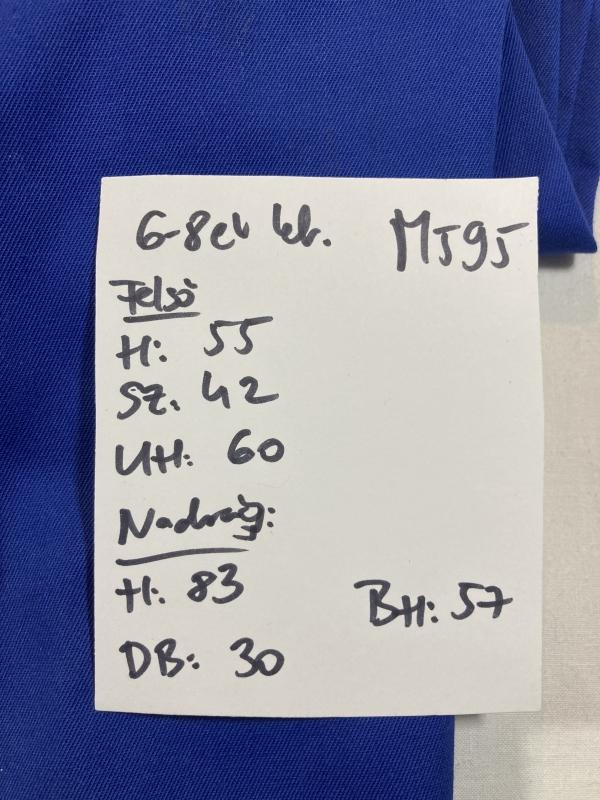 6-8 év kb. MJ95
Felső
H: 55
SZ. 42
UH: 60
Nadrág:
H: 83 BH: 57
DB: 30